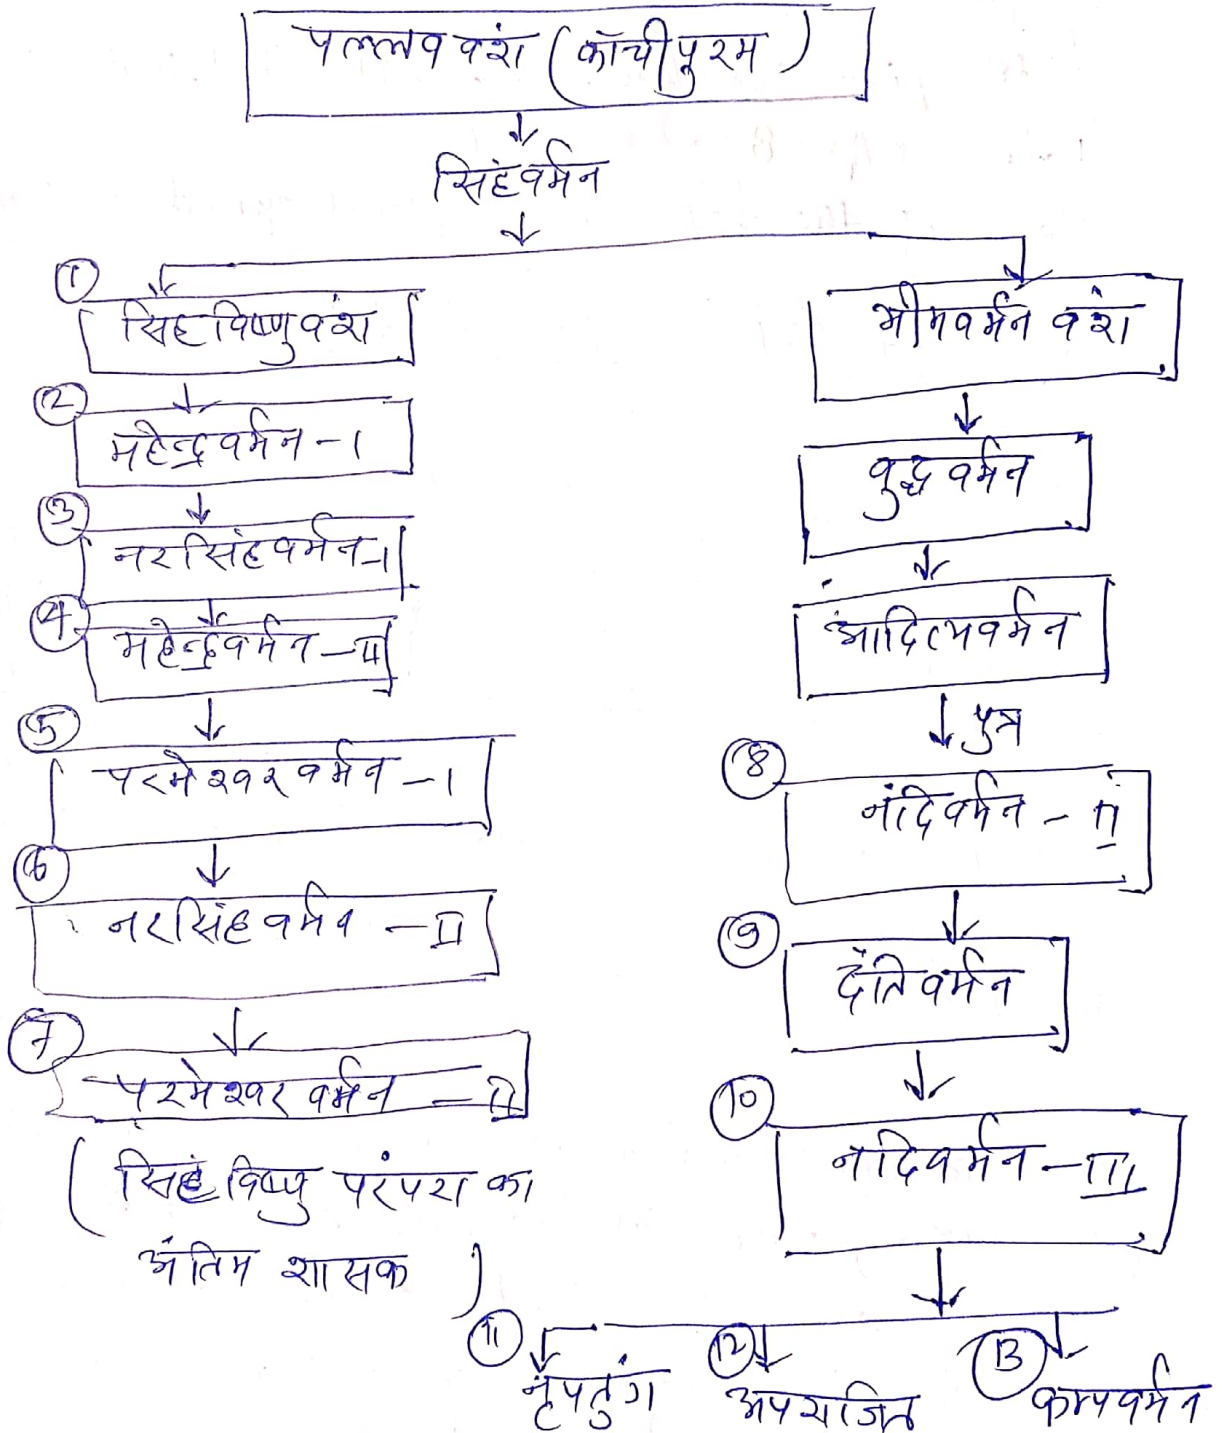 पल्लव वंश (काँचीपुरम)
सिंहवर्मन
1
सिंहविष्णु वंश
2
महेन्द्रवर्मन - I
3
नरसिंहवर्मन - I
4
महेन्द्रवर्मन - II
5
परमेश्वर वर्मन - I
6
नरसिंहवर्मन - II
7
परमेश्वर वर्मन - II
(सिंहविष्णु परंपरा का
अंतिम शासक)
भीमवर्मन वंश
बुद्धवर्मन
आदित्यवर्मन
पुत्र
8
नंदिवर्मन - II
9
दंतिवर्मन
10
नंदिवर्मन - III
11
नृपतुंग
12
अपराजित
13
कम्पवर्मन